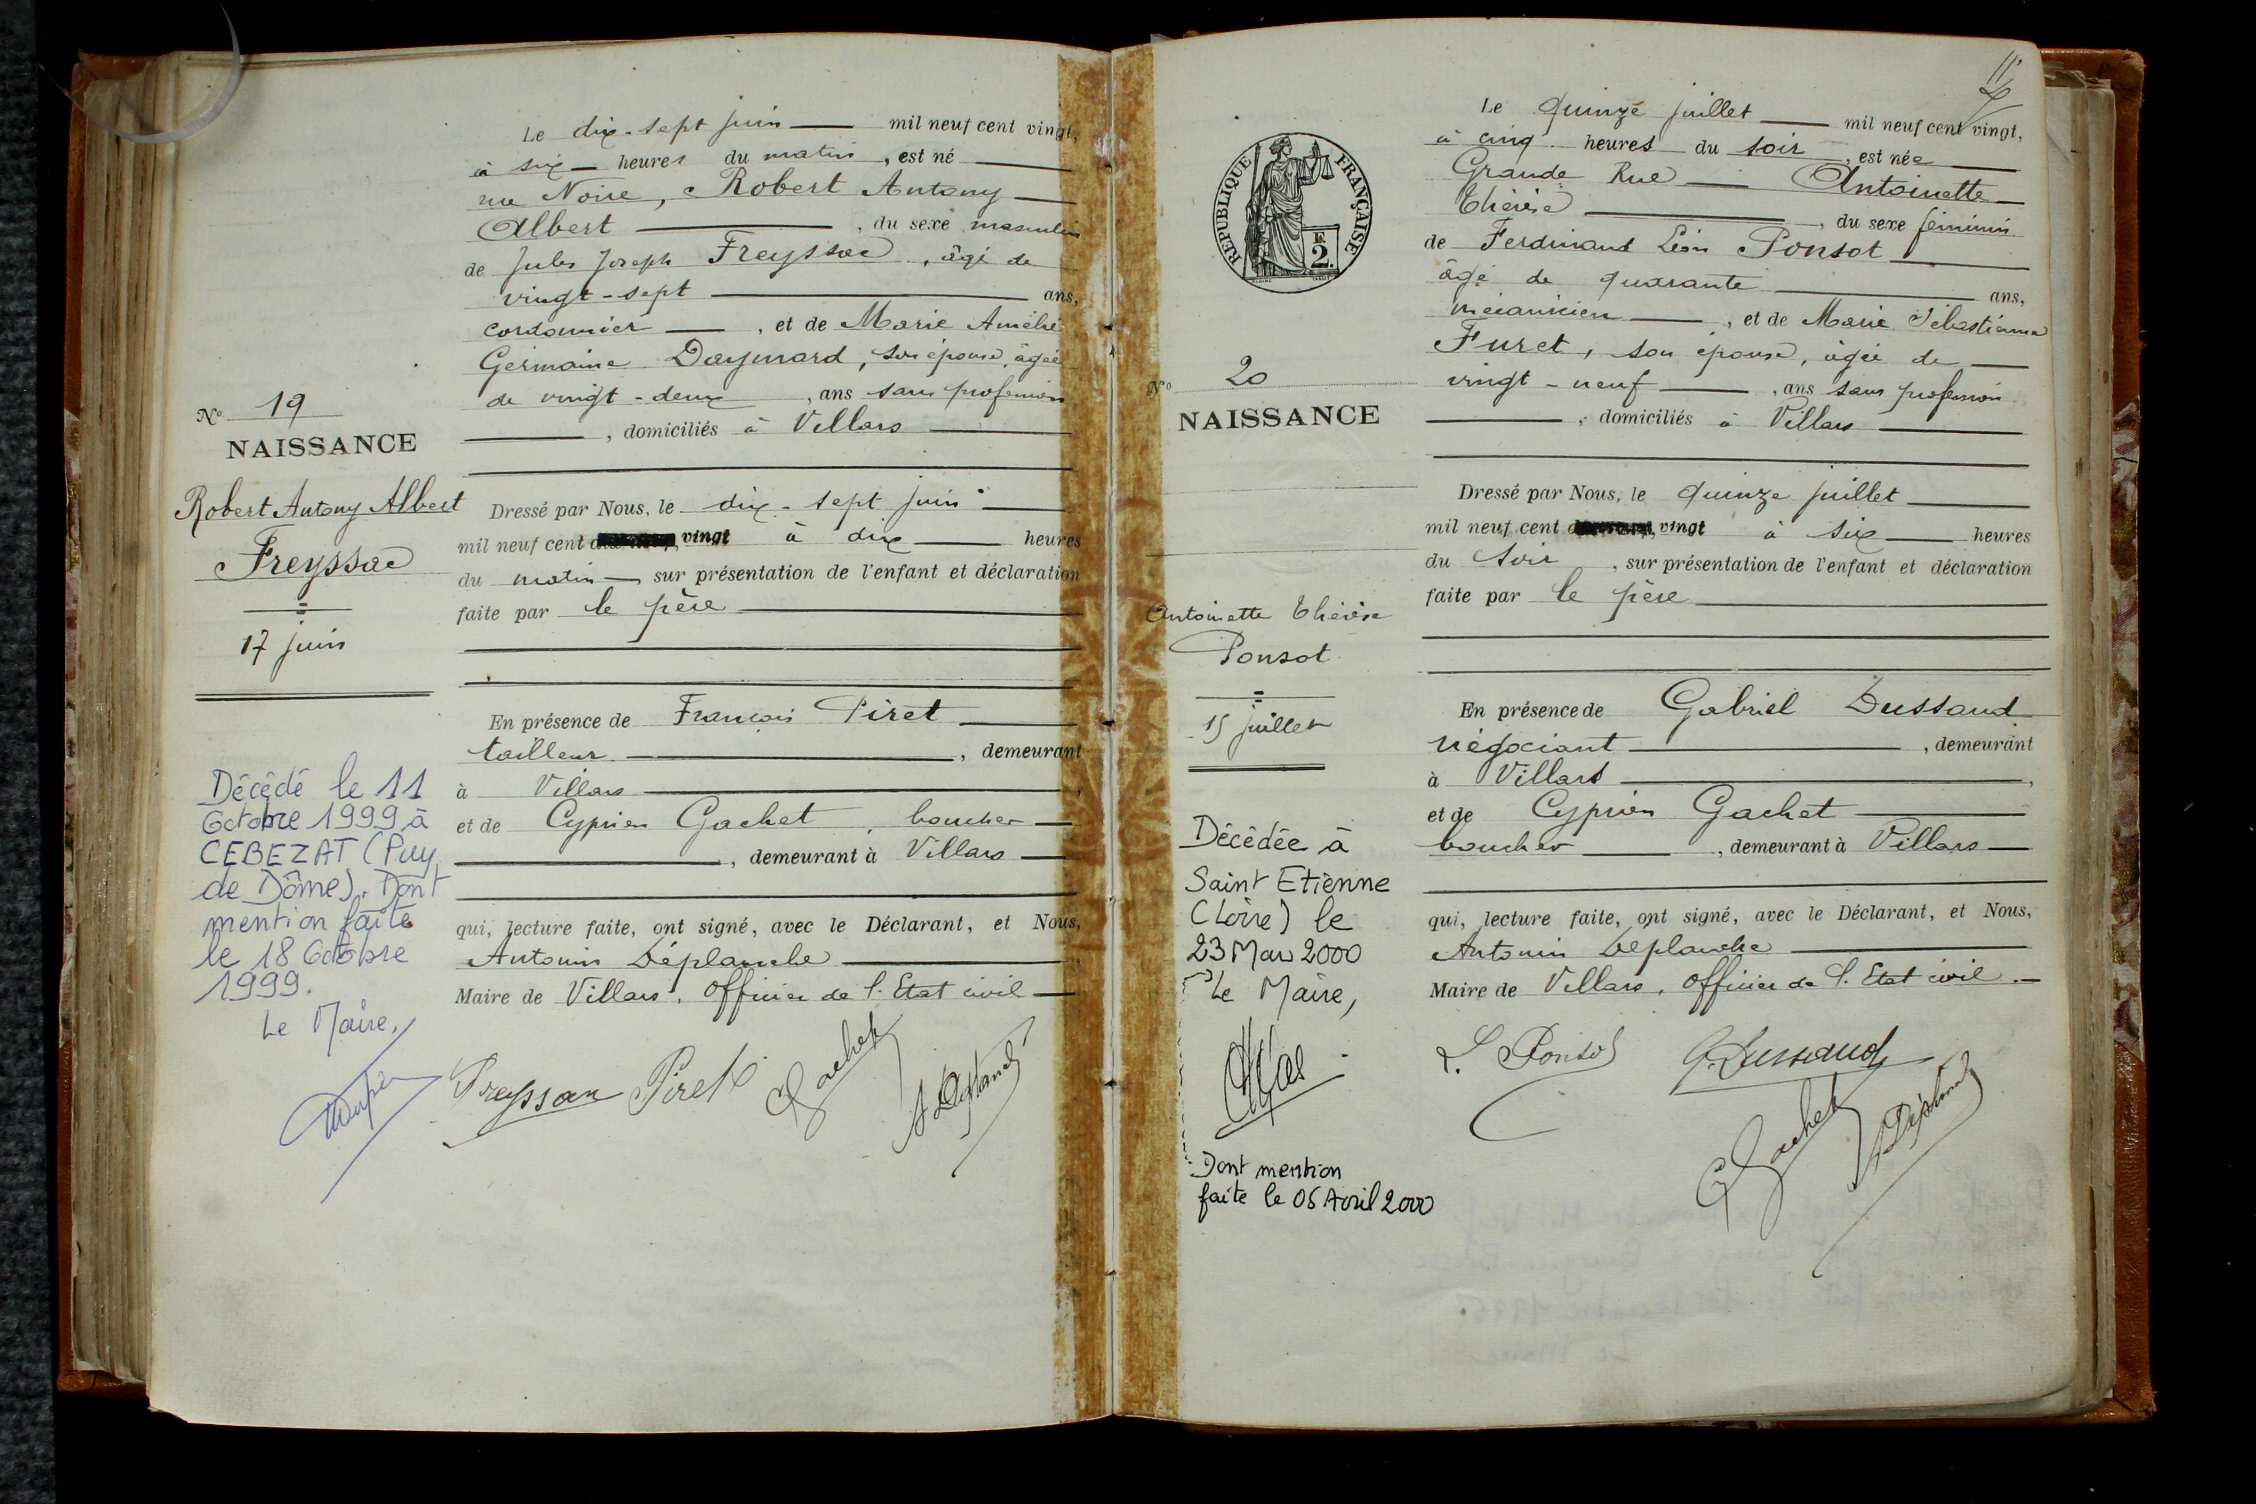 Le dix-sept juin mil neuf cent vingt,
à six heures du matin, est né
rue Noire, Robert Antony
Albert, du sexe masculin
de Jules Joseph Freyssac, âgé de
vingt-sept ans,
cordonnier, et de Marie Amélie
Germaine Daymard, son épouse, âgée
de vingt-deux, ans sans profession
, domiciliés à Villars
N° 19
NAISSANCE
Robert Antony Albert
Freyssac
17 juin
Dressé par Nous, le dix-sept juin
mil neuf cent vingt à dix heures
du matin sur présentation de l'enfant et déclaration
faite par le père
En présence de François Piret
tailleur, demeurant
à Villars,
et de Cyprien Gachet, boucher
, demeurant à Villars
qui, lecture faite, ont signé, avec le Déclarant, et Nous,
Antonin Déplanche
Maire de Villars, Officier de l'Etat civil
Décédé le 11
Octobre 1999 à
CEBEZAT (Puy
de Dôme). Dont
mention faite
le 18 Octobre
1999.
Le Maire,
Freyssac Piret Gachet A Déplanche
REPUBLIQUE FRANÇAISE
F.
2.
Le quinze juillet mil neuf cent vingt,
à cinq heures du soir, est née
Grande Rue Antoinette
Thérèse, du sexe féminin
de Ferdinand Léon Ponsot
âgé de quarante ans,
mécanicien, et de Marie Sébastienne
Furet, son épouse, âgée de
vingt-neuf, ans sans profession
, domiciliés à Villars
N° 20
NAISSANCE
Antoinette Thérèse
Ponsot
15 juillet
Dressé par Nous, le quinze juillet
mil neuf cent vingt à six heures
du soir, sur présentation de l'enfant et déclaration
faite par le père
En présence de Gabriel Dussaud
négociant, demeurant
à Villars,
et de Cyprien Gachet
boucher, demeurant à Villars
qui, lecture faite, ont signé, avec le Déclarant, et Nous,
Antonin Déplanche
Maire de Villars, Officier de l'Etat civil.
Décédée à
Saint Etienne
(Loire) le
23 Mars 2000
Le Maire,
Dont mention
faite le 05 Avril 2000
L. Ponsot G. Dussaud
C Gachet A Déplanche